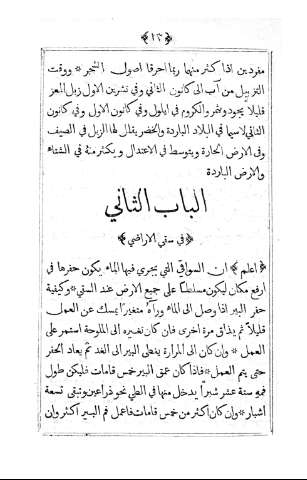 ﴿ ١٢ ﴾
مفردين اذا كثر منها ربما احرقا اصول الشجر * ووقت
التزبيل من آب الى كانون الثاني وفي تشرين الاول زبل المعز
قليلا يجود وثمر والكروم في ايلول وفي كانون الاول وفي كانون
الثاني لاسيما في البلاد الباردة والخضر يقلل لها الزبل في الصيف
وفي الارض الحارة ويتوسط في الاعتدال و يكثر منه في الشتاء
والارض الباردة
الباب الثاني
﴿ في سقي الاراضي ﴾
﴿ اعلم ﴾ ان السواقي التي يجري فيها الماء يكون حفرها في
ارفع مكان ليكون مسلطا على جميع الارض عند السقي * وكيفية
حفر البير اذا وصل الى الماء ورآه متغيرا يمسك عن العمل
قليلا ثم يذاق مرة اخرى فان كان تغيره الى الملوحة استمر على
العمل * وان كان الى المرارة يغطى البير الى الغد ثم يعاد الحفر
حتى يتم العمل * فاذا كان عمق البير خمس قامات فليكن طول
فمه ستة عشر شبرا يدخل منها في الطي نحو ذراعين وتبقى تسعة
اشبار * وان كان اكثر من خمس قامات فاعمل فم البير اكثر وان